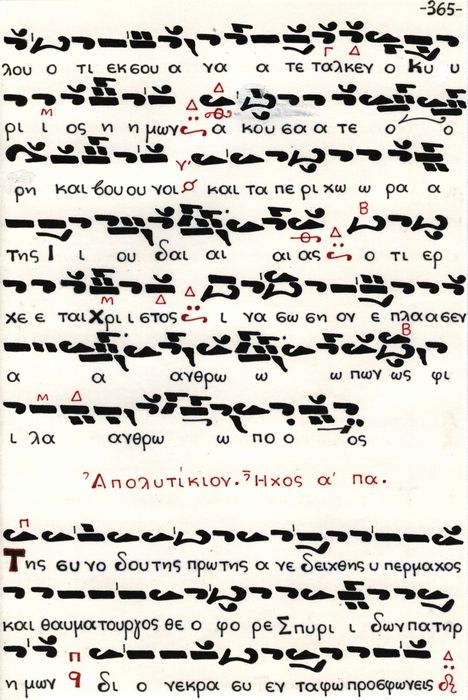 -365-
Γ Δ
λου ο τι εκσου α γα α τε ταλκεν ο Κυ υ
Μ Δ Δ
ρι ι ος η η μων α κου σα α τε ο ο
γ'
ρη και βου ου νοι και τα πε ρι χω ω ρα α
Δ Β
της Ι ι ου δαι αι αι ας ο τι ερ
Μ Δ Δ
χε ε ται Χρι ι στος ι να σω ση ον ε πλα α σεν
Β
α α ανθρω ω ω πων ως φι
Μ Δ
ι λα ανθρω ω πο ο ος
Ἀπολυτίκιον. Ἦχος α' πα.
Π
Της συ νο δου της πρω της α νε δειχθης υ περμαχος
και θαυματουργος θε ο φο ρε Σπυρι ι δων πατηρ
Π Δ
η μων q δι ο νεκρα συ εν ταφω προσφωνεις